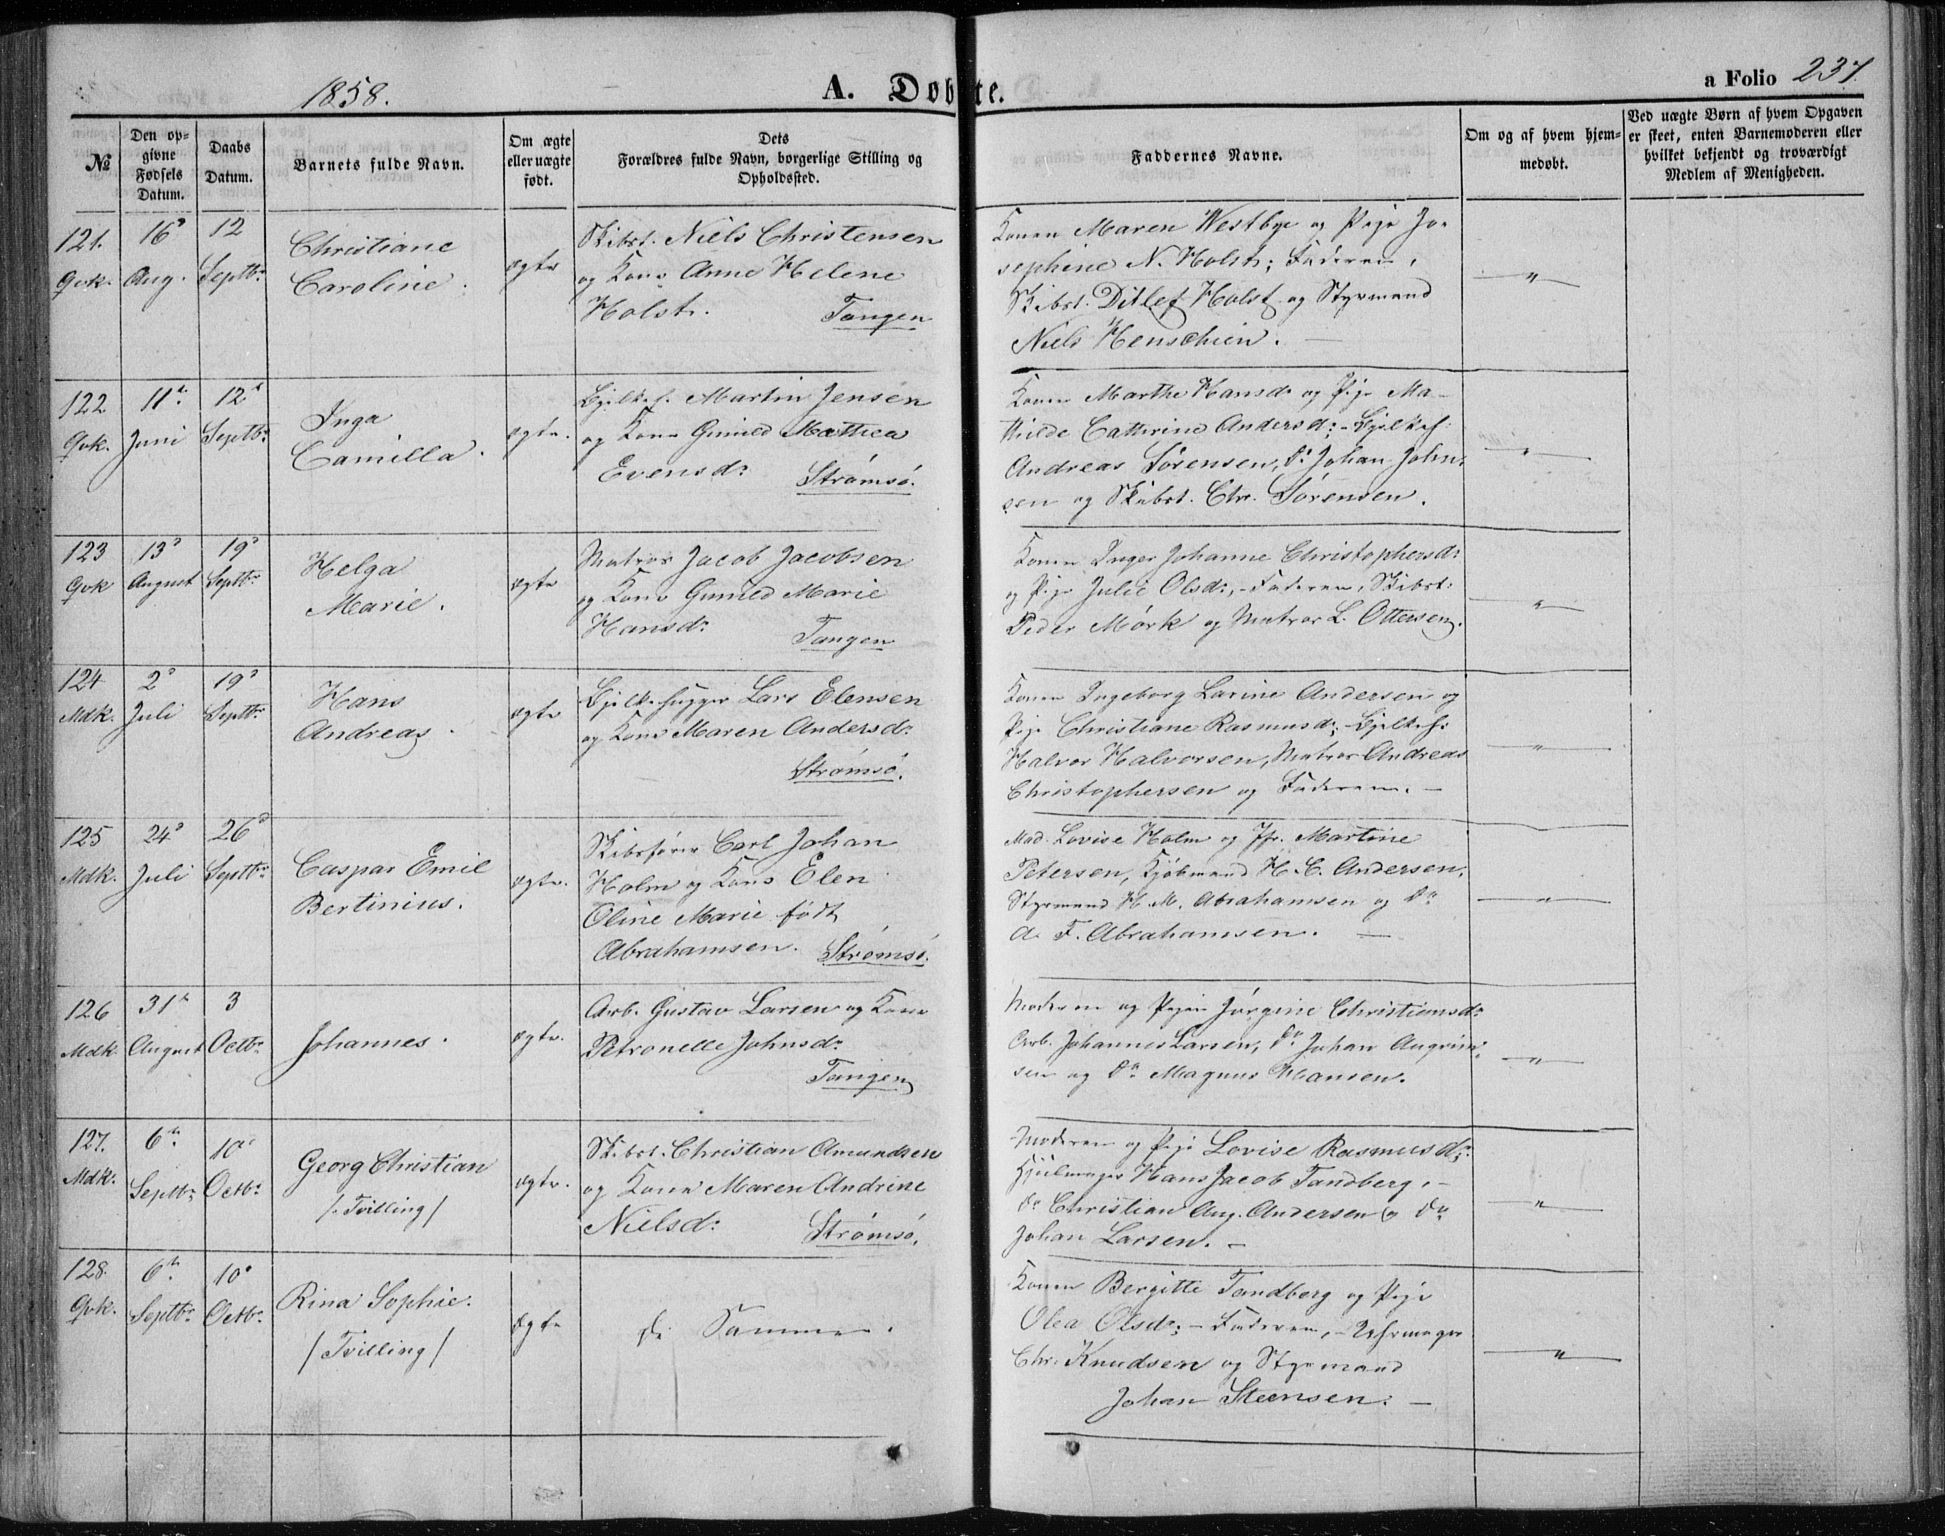 1858.
A. Døbte.
a Folio 237.
№
Den opgivne Fødsels Datum.
Daabs Datum.
Barnets fulde Navn.
Om ægte eller uægte født.
Dets Forældres fulde Navn, borgerlige Stilling og Opholdssted.
Faddernes Navne.
Om og af hvem hjemmedøbt.
Ved uægte Børn af hvem Opgaven er skeet, enten Barnemoderen eller hvilket bekjendt og troværdigt Medlem af Menigheden.
121. Qvk.
16d Aug.
12 Septbr.
Christiane
Caroline.
ægte
Skibst. Niels Christensen
og Kone Anne Helene
Holst. Tangen
Konen Maren Westbye og Pige Jo-
sephine N. Holst; Faderen,
Skibst. Ditlef Holst og Styrmand
Niels Henschien.
"
122 Qvk.
11t Juni
12t Septbr.
Inga
Camilla.
ægte.
Bjelkef. Martin Jensen
og Kone Gunild Mattea
Evensd: Strømsø.
Konen Marthe Hansd: og Pige Ma-
thilde Cathrine Andersd:, - Bjelkef:
Andreas Sørensen, do Johan John-
sen og Skibst. Chr. Sørensen.
"
123 Qvk
13d August
19d Septbr.
Helga
Marie.
ægte
Matros Jacob Jacobsen
og Kone Gunild Marie
Hansd: Tangen
Konen Inger Johanne Christophersd:
og Pige Julie Olsd:, - Faderen, Skibst:
Peder Mørk og Matros L. Ottersen.
"
124 Mdk.
2d Juli
19d Septbr.
Hans
Andreas.
ægte
Bjelkehugger Lars Elensen
og Kone Maren Andersd:
Strømsø.
Konen Ingeborg Larine Andersen og
Pige Christiane Rasmusd:, - Bjelkef:
Halvor Halvorsen, Matros Andreas
Christophersen og Faderen. -
"
125 Mdk.
24d Juli
26d Septbr.
Caspar Emil
Bertinius.
ægte.
Skibsfører Carl Johan
Holm og Kone Elen
Oline Marie født
Abrahamsen. Strømsø.
Mad. Lovise Holm og Jfr. Martine
Petersen, Kjøbmand H. C. Andersen,
Styrmand H. M. Abrahamsen og Do
do F. Abrahamsen. -
"
126 Mdk.
31t August
3 Octbr.
Johannes.
ægte.
Arb. Gustav Larsen og Kone
Petronelle Johnsd:
Tangen
Moderen og Pigen Jørgine Christiansd:
Arb. Johannes Larsen, do Johan Angrim-
sen og do Magnus Hansen.
"
127. Mdk.
6te Septbr.
10d Octbr.
Georg Christian
/: Tvilling /
ægte.
Skibst. Christian Amundsen
og Kone Maren Andrine
Nielsd: Strømsø.
Moderen og Pige Lovise Rasmusd:,
Hjulmager Hans Jacob Tandberg, -
do Christian Aug. Andersen og do
Johan Larsen. -
"
128. Qvk.
6te Septbr.
10d Octbr.
Rina Sophie.
/ Tvilling /
ægte
de Samme.
Konen Bergitte Tandberg og Pige
Olea Olsd:, - Faderen, - Uhrmager
Chr. Knudsen og Styrmand
Johan Steensen. -
"